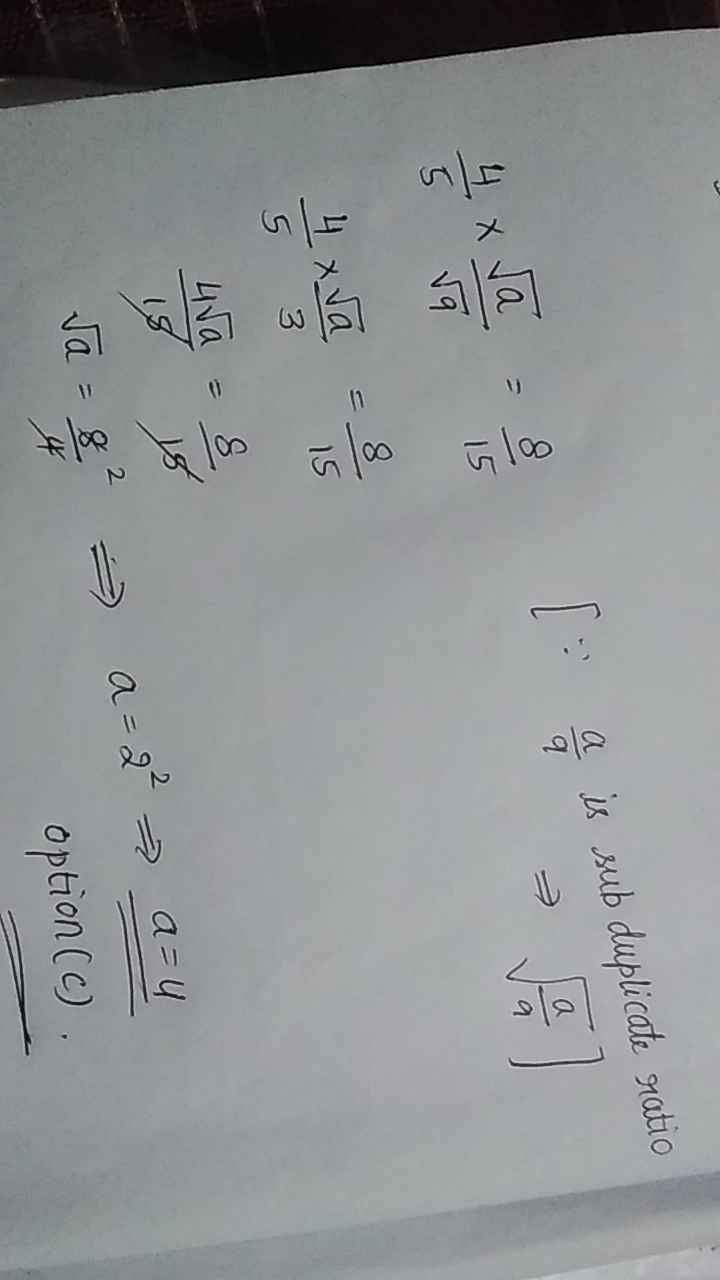 4/5 × √a/√9 = 8/15 [∵ a/9 is sub duplicate ratio ⇒ √(a/9)]
4/5 × √a/3 = 8/15
4√a/15 = 8/15
√a = 8/4 2 ⇒ a = 2² ⇒ a = 4
option (c).